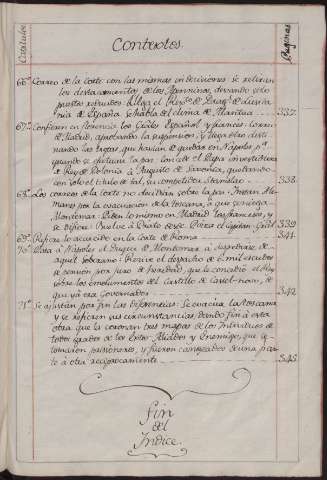 Capitulos
Contextos
Paginas
66º Correo de la Corte con las mismas indecisiones se retiran
los destacamentos de los Apeninos, dexando solo
puestos retraidos. Llega el Regto. de Drags. de Lusita
nia de España. Se habla del clima de Mantua 337.
67º Confieren en Florencia los Grales Español y Frances. Correo
de Madrid, aprobando la suspension, y llega otro desti
nando las tropas, que havian de quedar en Napoles pª
quando se efectuare la paz
Rey de Polonia à Augusto de Saxonia, quedando
con solo el titulo de tal, su competidor Stanislao 338.
68º Los correos de la Corte no deciden sobre la paz. Instan Ale
manes por la evacuacion de la Toscana, à que se niega
Montemar. Piden lo mismo en Madrid los franceses, y
se difiere. Vuelve à Prato desde Pisa el Capitan Gral 339
69º Refiere lo acaecido en la Corte de Roma 341.
70º Passa à Napoles el Duque de Montemar à despedirse de
aquel soberano: Recive el despacho de 6 mil escudos
de pension por juro de heredad, que le concedió el Rey
sobre los emolumentos del Castillo de Castel-novo, de
que yà era Governador 342.
71º Se ajustan por fin las diferencias: Se evacua la Toscana
y se refieren sus circunstancias, dando fin à esta
obra que la coronan tres mapas de los Individuos de
todos grados de los Extos. Aliados y Enemigo, que se
tomaron prisioneros, y fueron cangeados de una par
te à otra reciprocamente 345.
fin
del
Indice.